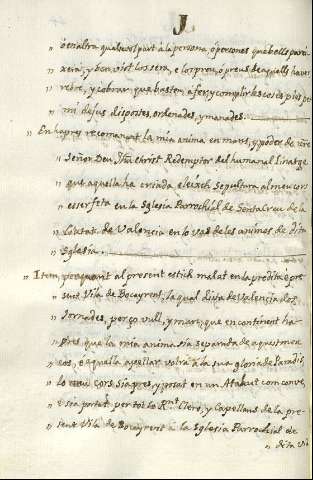 J.
" ò en altra qualsevol part à la persona, ò persones que à ells parei-
" xerà, y ben vist los serà, e lo preu, ò preus de aquells haver,
" rebre, y cobrar que basten à fer, y complir les coses pies per
" mi dejus dispostes, ordenades, y manades.
" En lo pnt recomanant la mia anima en mans, y poder de ñre
" Señor Deu Jhu christ Redemptor del humanal Linatge
" que aquella ha criada eleixch sepultura al meu cors
" esser feta en la Iglesia Parrochial de Santa Creu de la
" Ciutat de Valencia en lo vas de les animes de dita
" Iglesia.
" Item, per quant al present estich malat en la predita pre-
" sent Vila de Bocayrent, la qual dista de Valencia dos
" Jornades, per ço vull, y man, que en continent ha-
" pres que la mia anima sia separada de aquest meu
" cos, e aquella apellar volrà à la sua gloria de Paradis,
" lo meu cors sia pres, y posat en un Ataut com conve,
" e sia portat per tot lo Rnt Clero, y Capellans de la pre-
" sent Vila de Bocayrent à la Iglesia Parrochial de
" dita Vi-